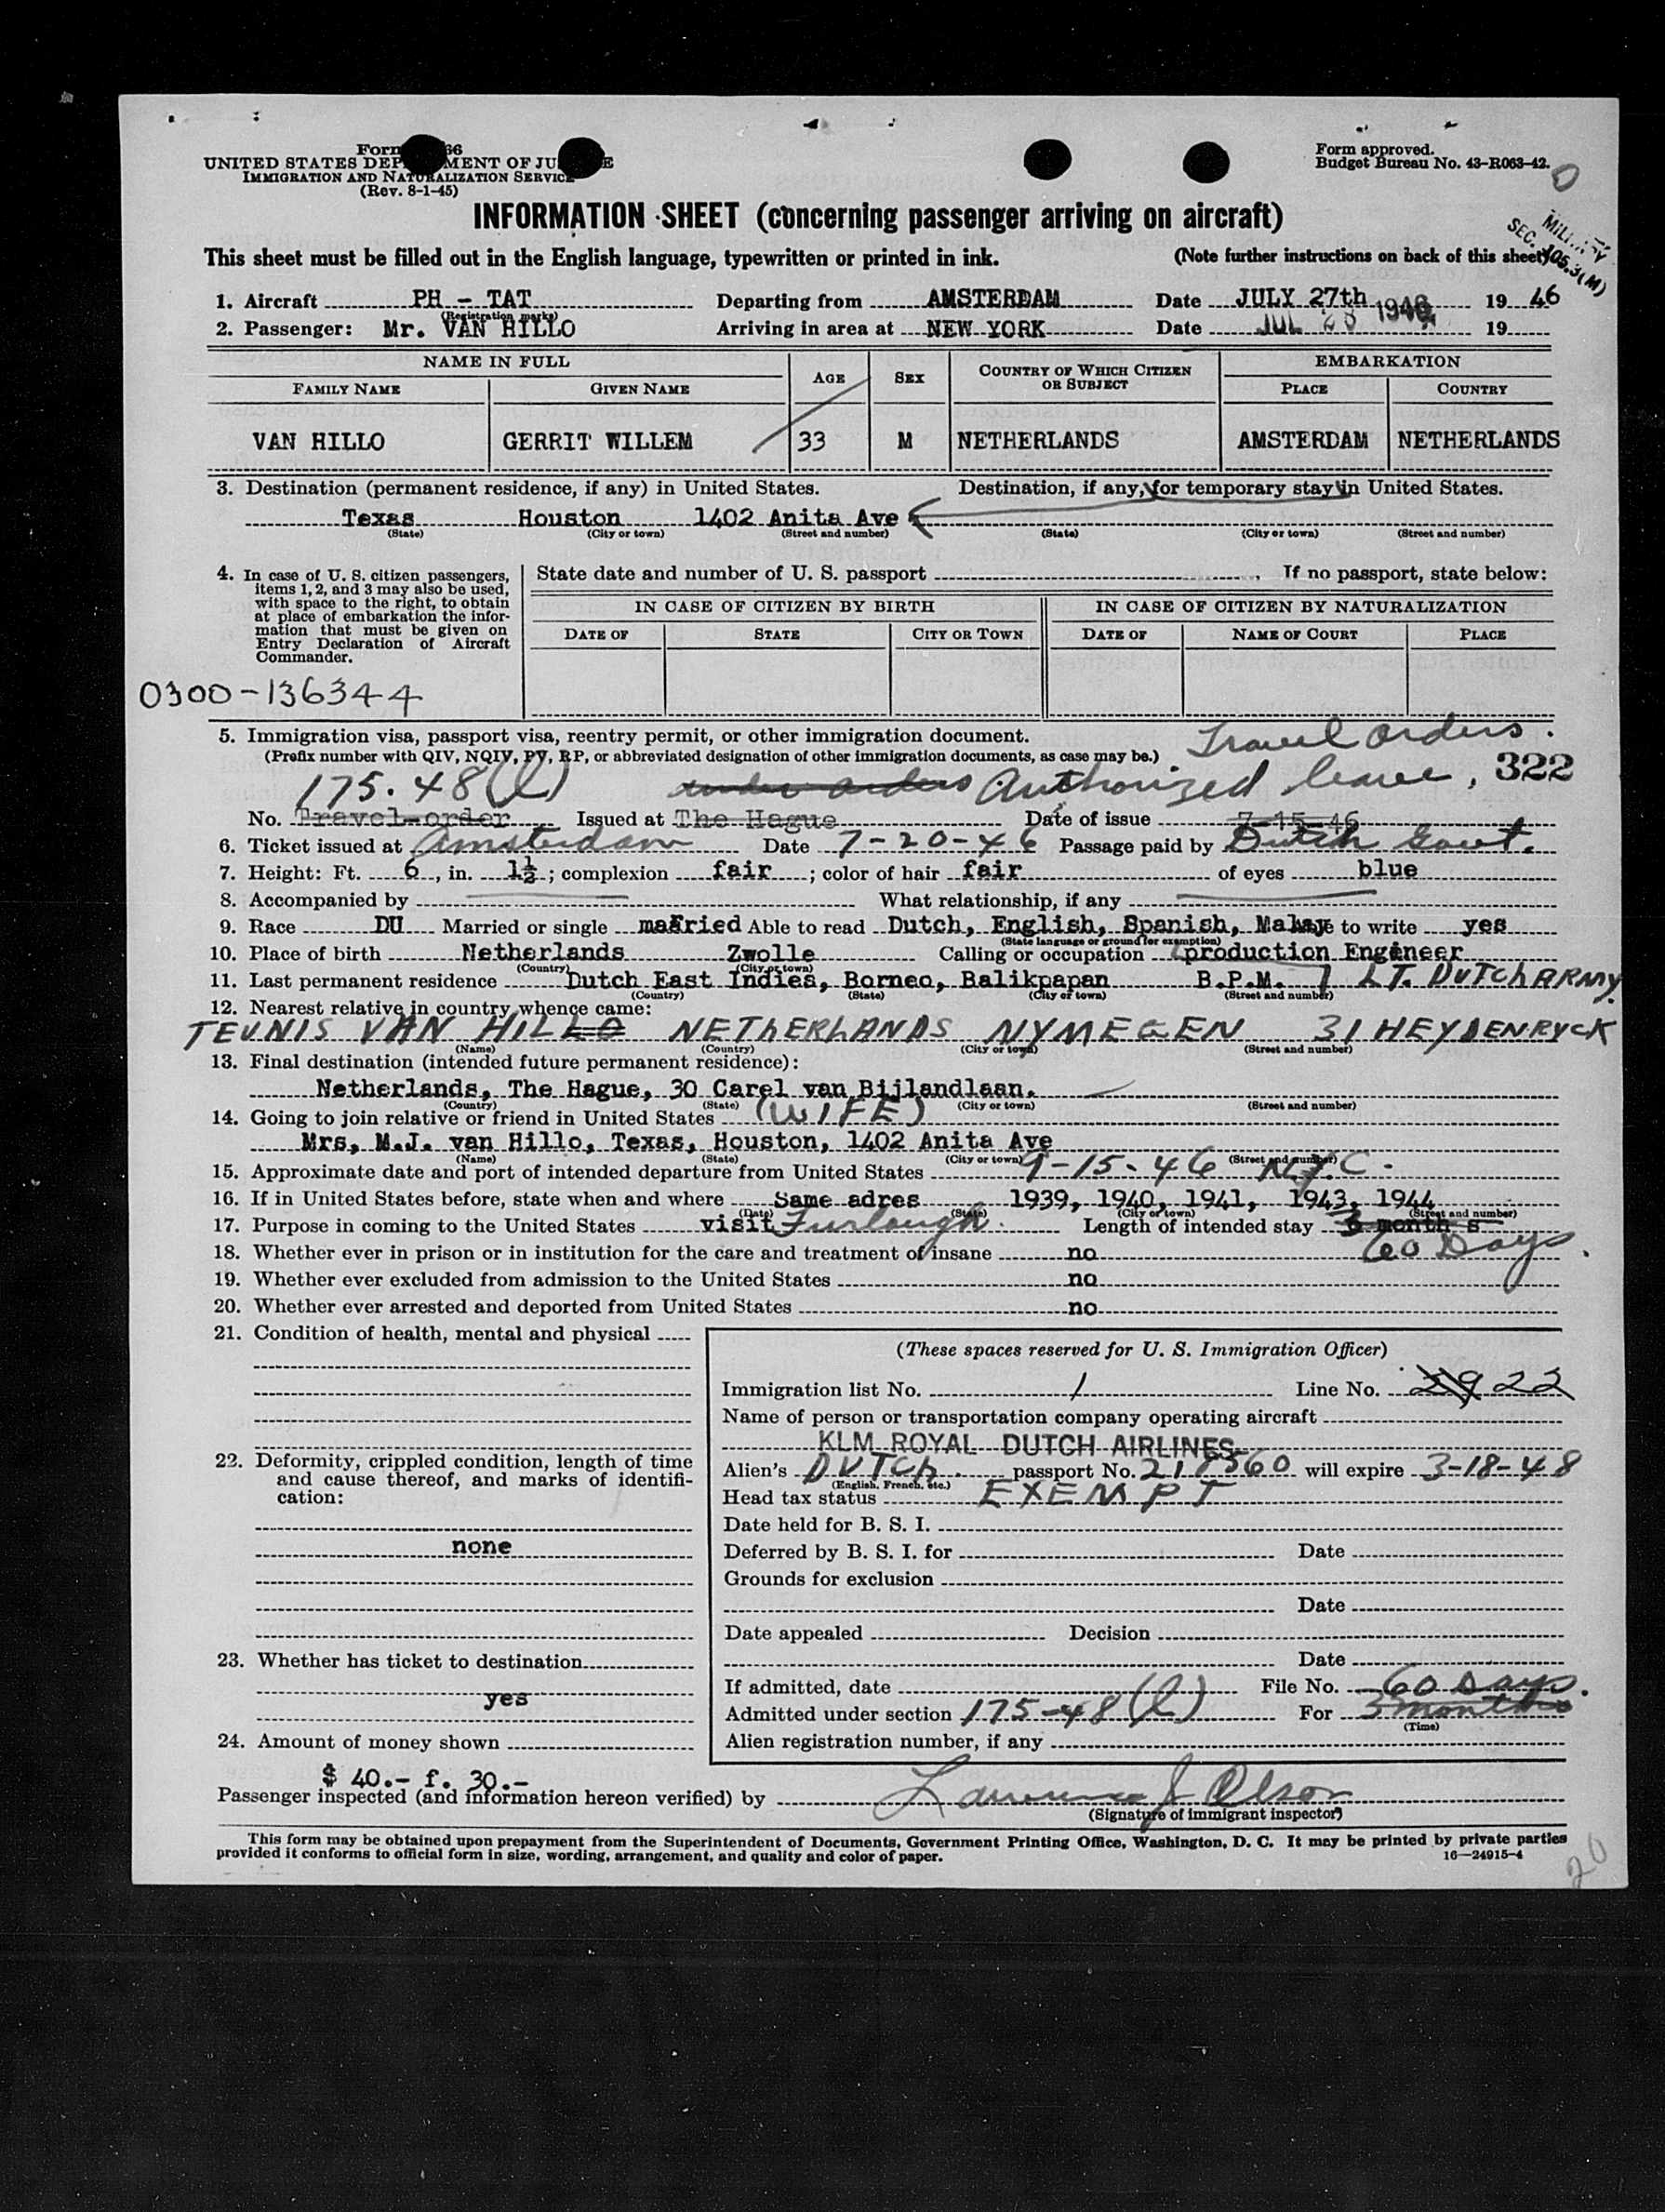 Form 66
UNITED STATES DEP MENT OF JU E
IMMIGRATION AND NATURALIZATION SERVICE
(Rev. 8-1-45)
Form approved.
Budget Bureau No. 43-R063-42.
0
INFORMATION SHEET (concerning passenger arriving on aircraft)
SEC. 105.3(M)
This sheet must be filled out in the English language, typewritten or printed in ink. (Note further instructions on back of this sheet)
1. Aircraft PH - TAT Departing from AMSTERDAM Date JULY 27th 19 46
(Registration marks)
2. Passenger: Mr. VAN HILLO Arriving in area at NEW YORK Date JUL 28 1946 19
NAME IN FULL AGE SEX COUNTRY OF WHICH CITIZEN OR SUBJECT EMBARKATION
FAMILY NAME GIVEN NAME PLACE COUNTRY
VAN HILLO GERRIT WILLEM 33 M NETHERLANDS AMSTERDAM NETHERLANDS
3. Destination (permanent residence, if any) in United States. Destination, if any, for temporary stay in United States.
Texas Houston 1402 Anita Ave
(State) (City or town) (Street and number) (State) (City or town) (Street and number)
4. In case of U. S. citizen passengers, items 1, 2, and 3 may also be used, with space to the right, to obtain at place of embarkation the information that must be given on Entry Declaration of Aircraft Commander.
State date and number of U. S. passport . If no passport, state below:
IN CASE OF CITIZEN BY BIRTH IN CASE OF CITIZEN BY NATURALIZATION
DATE OF STATE CITY OR TOWN DATE OF NAME OF COURT PLACE
0300-136344
5. Immigration visa, passport visa, reentry permit, or other immigration document. Travel orders.
(Prefix number with QIV, NQIV, PV, RP, or abbreviated designation of other immigration documents, as case may be.)
175.48(l) under orders Authorized leave, 322
No. Travel-order Issued at The Hague Date of issue 7-15-46
6. Ticket issued at Amsterdam Date 7-20-46 Passage paid by Dutch Govt.
7. Height: Ft. 6, in. 1½; complexion fair; color of hair fair of eyes blue
8. Accompanied by What relationship, if any
9. Race DU Married or single married Able to read Dutch, English, Spanish, Malay Able to write yes
(State language or ground for exemption)
10. Place of birth Netherlands Zwolle Calling or occupation production Engineer
(Country) (City or town)
11. Last permanent residence Dutch East Indies, Borneo, Balikpapan B.P.M. 1 LT. DUTCH ARMY
(Country) (State) (City or town) (Street and number)
12. Nearest relative in country whence came:
TEUNIS VAN HILLO NETHERLANDS NYMEGEN 31 HEYDENRYCK
(Name) (Country) (City or town) (Street and number)
13. Final destination (intended future permanent residence):
Netherlands, The Hague, 30 Carel van Bijlandlaan.
(Country) (State) (City or town) (Street and number)
14. Going to join relative or friend in United States (WIFE)
Mrs, M.J. van Hillo, Texas, Houston, 1402 Anita Ave
(Name) (State) (City or town) (Street and number)
15. Approximate date and port of intended departure from United States 9-15-46 N.Y.C.
16. If in United States before, state when and where Same adres 1939, 1940, 1941, 1943, 1944
(Date) (State) (City or town) (Street and number)
17. Purpose in coming to the United States visit Furlough. Length of intended stay 3 month s
18. Whether ever in prison or in institution for the care and treatment of insane no 60 Days.
19. Whether ever excluded from admission to the United States no
20. Whether ever arrested and deported from United States no
21. Condition of health, mental and physical
22. Deformity, crippled condition, length of time and cause thereof, and marks of identification:
none
23. Whether has ticket to destination
yes
24. Amount of money shown
$ 40.- f. 30.-
(These spaces reserved for U. S. Immigration Officer)
Immigration list No. 1 Line No. 29 22
Name of person or transportation company operating aircraft
KLM ROYAL DUTCH AIRLINES
Alien's DUTCH. passport No. 211560 will expire 3-18-48
(English, French, etc.)
Head tax status EXEMPT
Date held for B. S. I.
Deferred by B. S. I. for Date
Grounds for exclusion
Date
Date appealed Decision
Date
If admitted, date File No. 60 Days.
Admitted under section 175-48(l) For 3 months
(Time)
Alien registration number, if any
Passenger inspected (and information hereon verified) by Lawrence J Olson
(Signature of immigrant inspector)
This form may be obtained upon prepayment from the Superintendent of Documents, Government Printing Office, Washington, D. C. It may be printed by private parties
provided it conforms to official form in size, wording, arrangement, and quality and color of paper. 16—24915-4
20